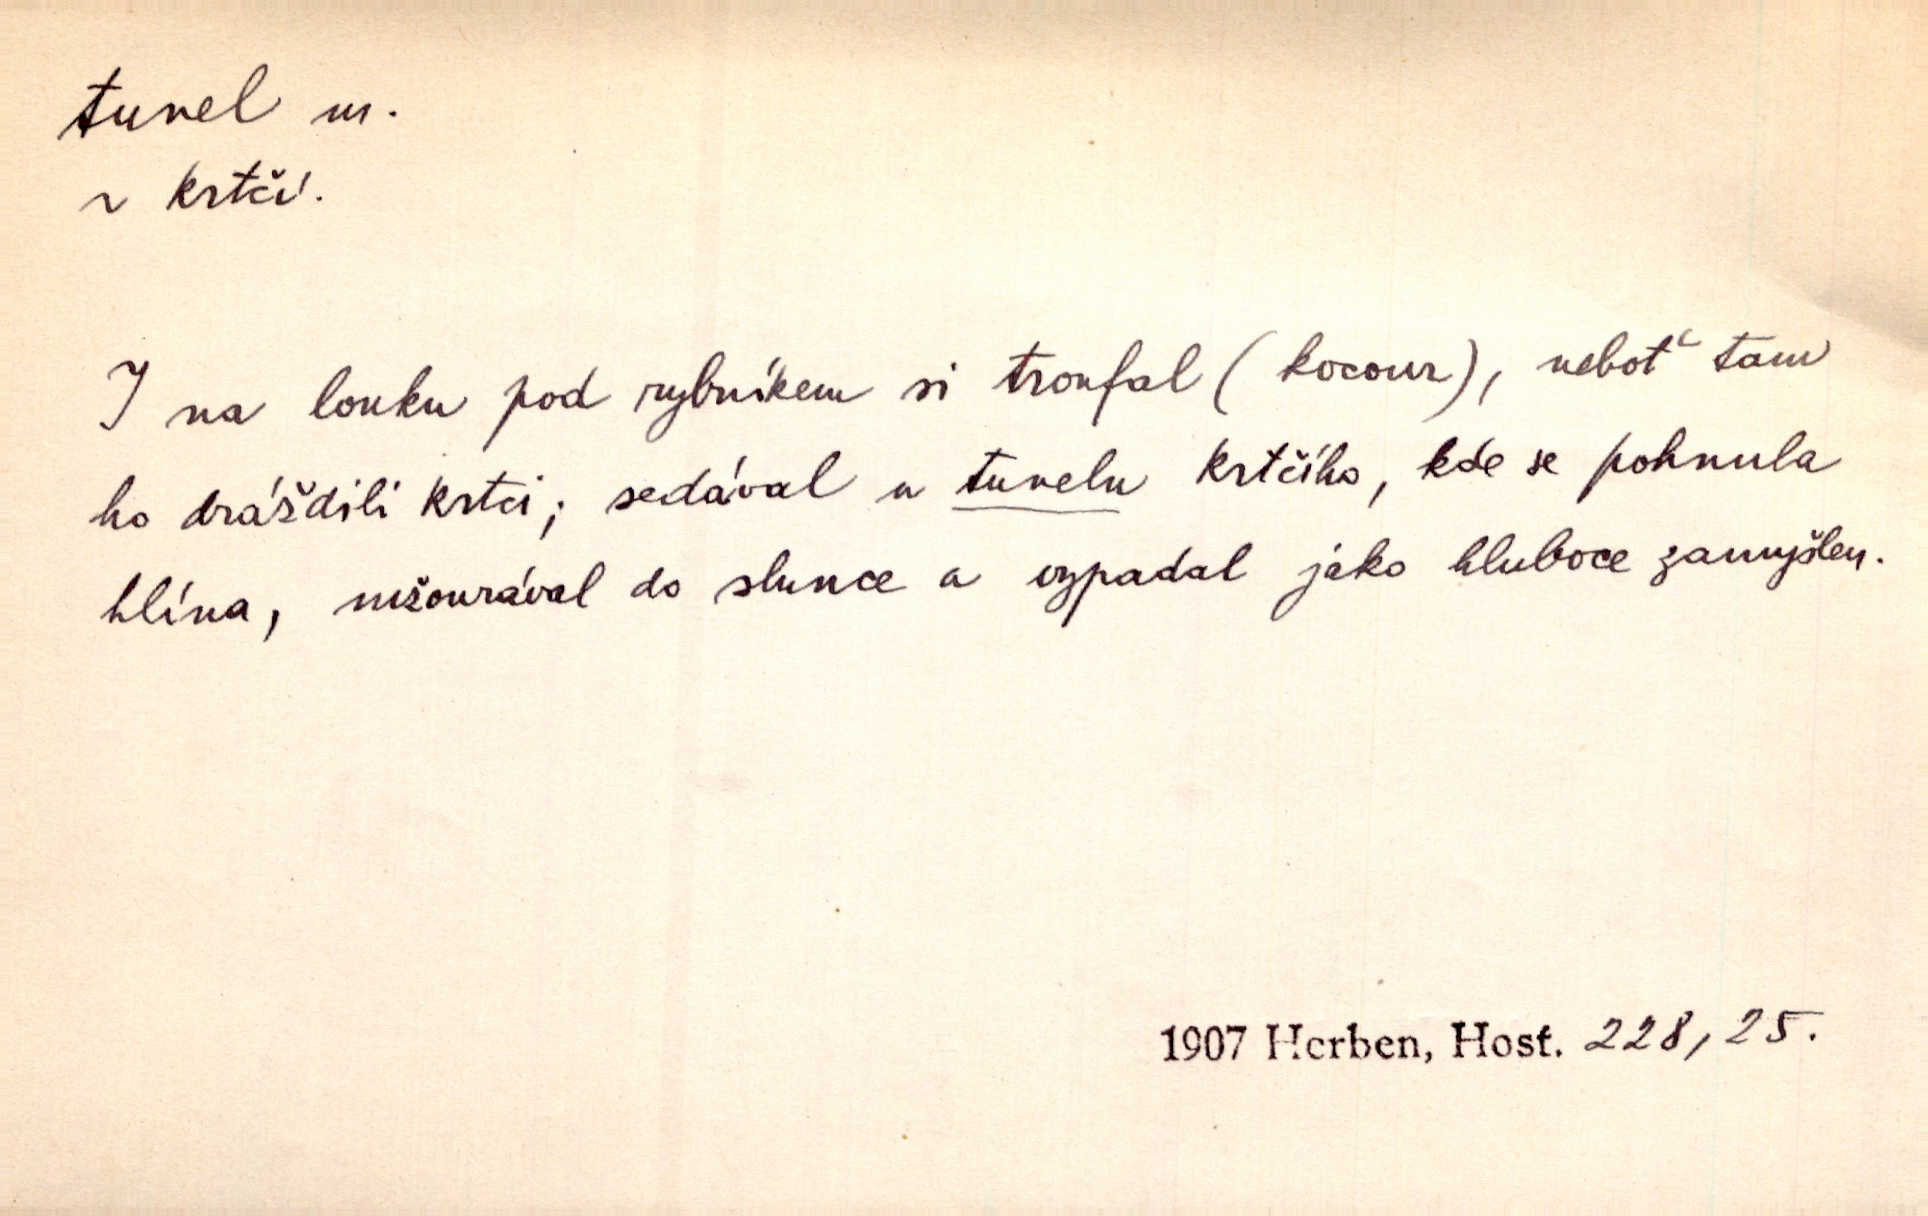 tunel m.
~ krtčí.
I na louku pod rybníkem si troufal (kocour), neboť tam
ho dráždili krtci; sedával u tunelu krtčího, kde se pohnula
hlína, mžourával do slunce a vypadal jako hluboce zamyšlen.
1907 Herben, Host. 228, 25.